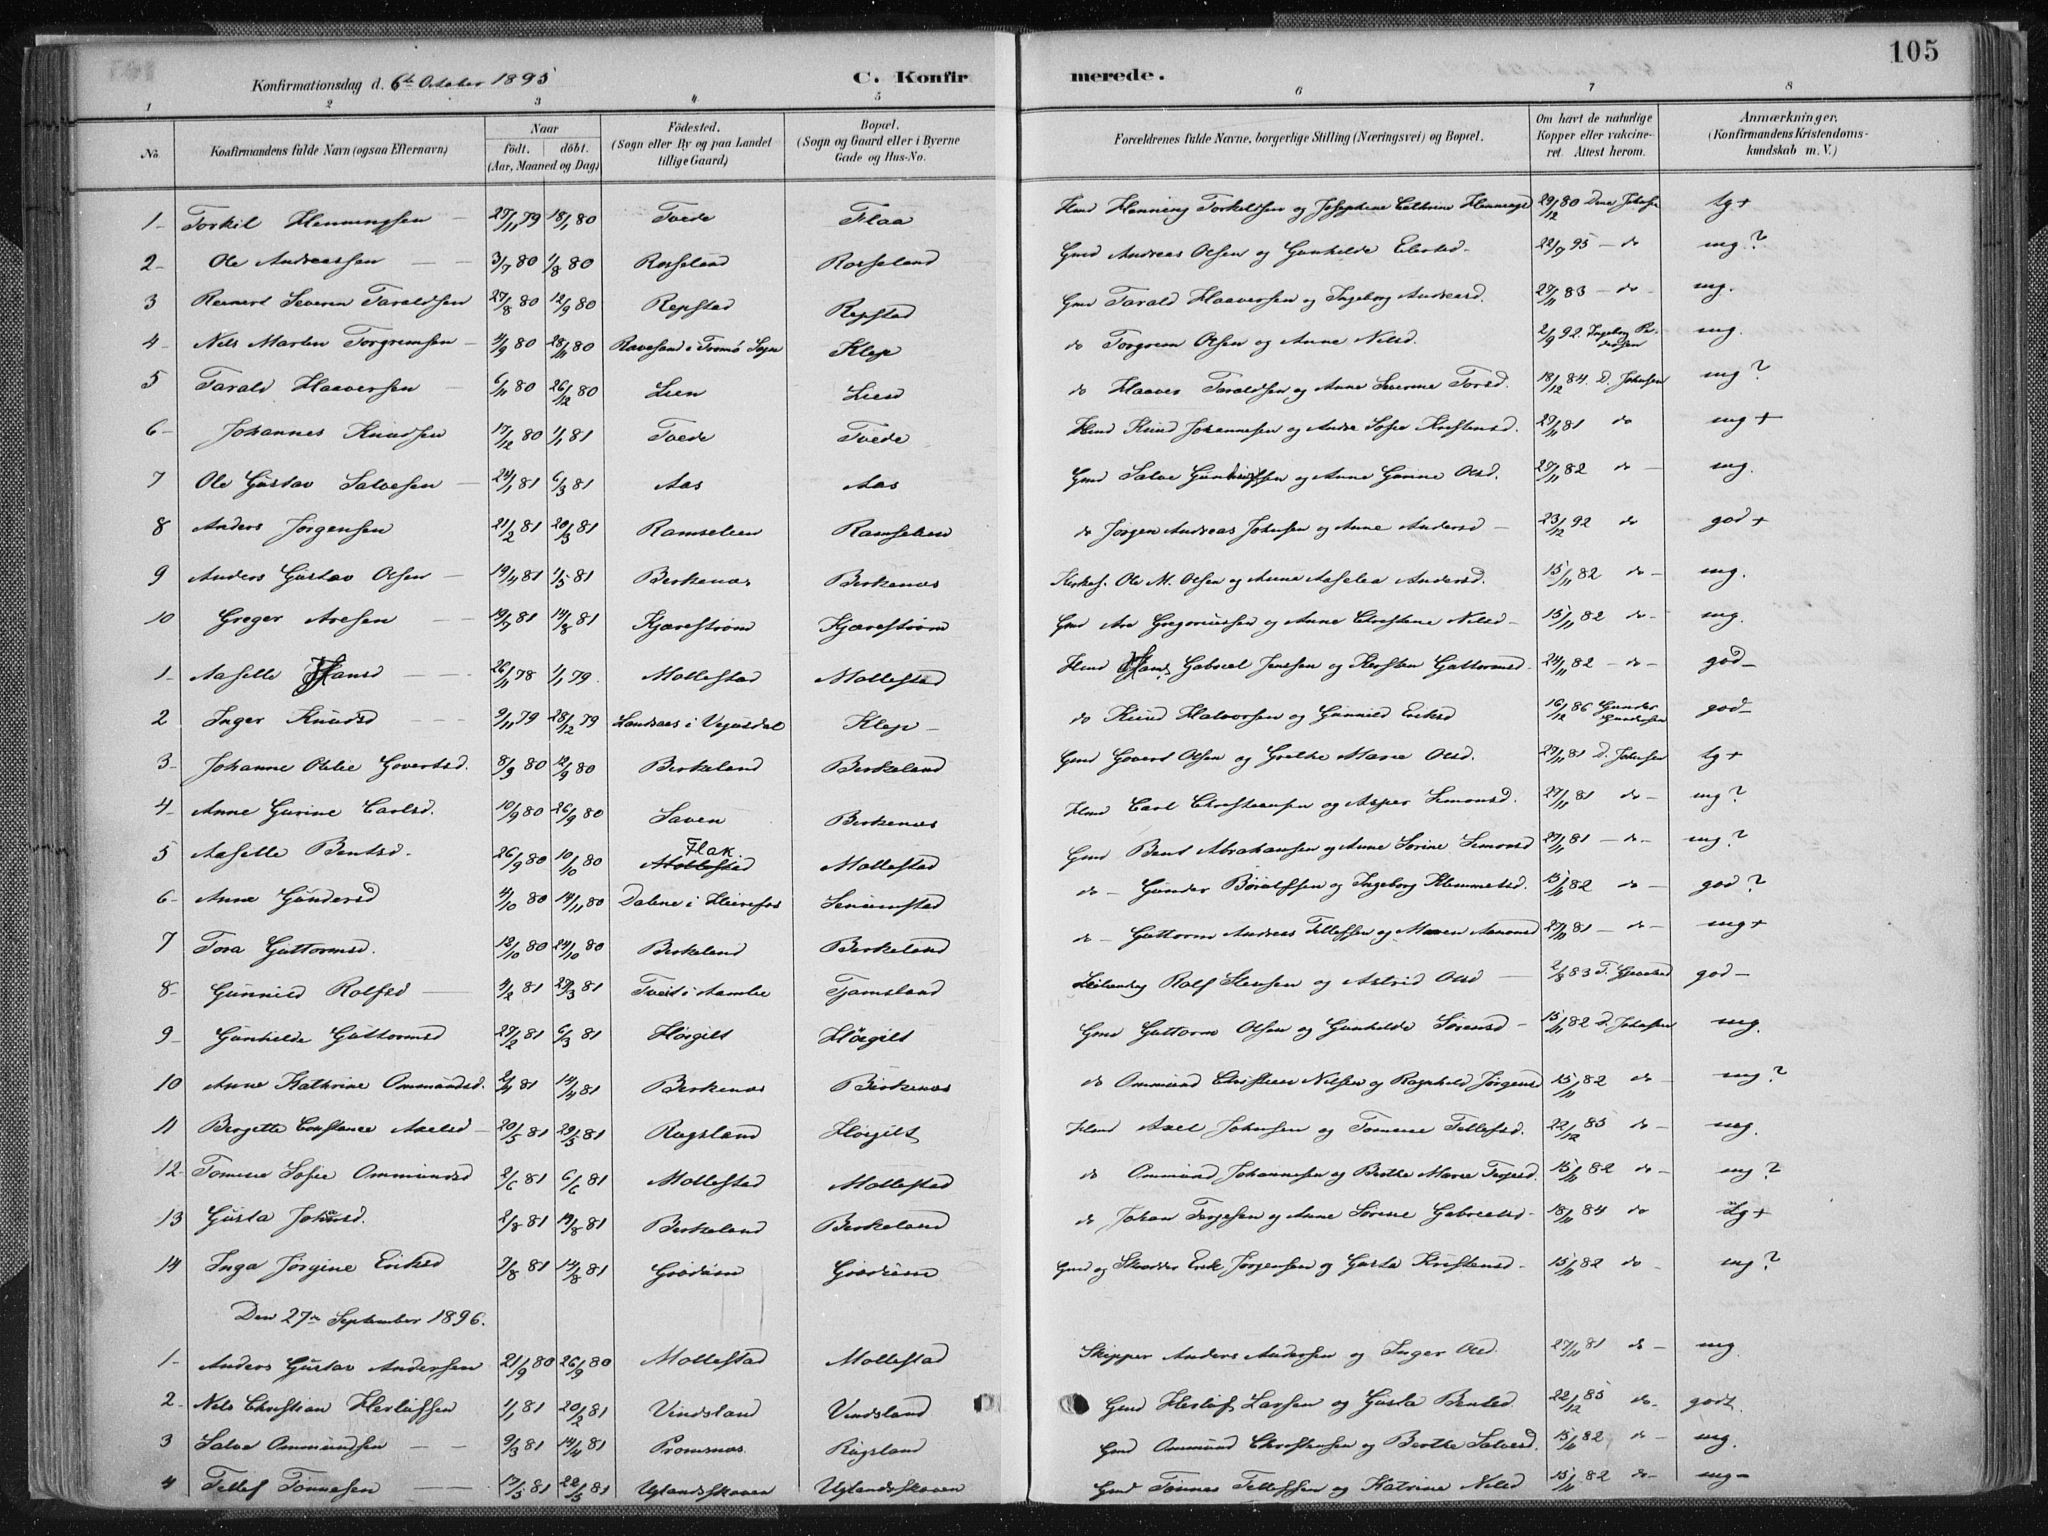 105
Konfirmationsdag d. 6te October 1895
C. Konfirmerede.
1 2 3 4 5 6 7 8
No. Konfirmandens fulde Navn (ogsaa Efternavn) Naar født. døbt. (Aar, Maaned og Dag) Fødested. (Sogn eller By og paa Landet tillige Gaard) Bopæl. (Sogn og Gaard eller i Byerne Gade og Hus-No. Forældrenes fulde Navne, borgerlige Stilling (Næringsvei) og Bopæl. Om havt de naturlige Kopper eller vakcineret. Attest herom. Anmærkninger. (Konfirmandens Kristendomskundskab m. V.)
1 Torkil Henningsen 27/11 79 18/1 80 Tvede Flaa Hmd Henning Torkeldsen og Josephine Cathrine 29/12 80 tg+
2 Ole Andreassen 3/7 80 1/8 80 Rosseland Rosseland Gmd Andreas Olsen og Gunhilde 22/7 95 do mg?
3 Reinert Severin Taraldsen 27/8 80 12/9 80 Repstad Repstad Gmd Tarald Haaversen og Ingeborg Andreasd. 27/11 83 do mg.
4 Nils Martin Torgrimsen 4/9 80 28/11 80 Ravesand i Tromø Sogn Klep do Torgrim Olsen og Anne Nilsd. 2/9 92. Ingeborg Pedersen mg.
5 Tarald Haaversen 6/11 80 26/12 80 Lien Lien do Haaver Taraldsen og Anne Severine Torsd. 18/12 84. D. Johnsen mg?
6 Johannes Knudsen 17/12 80 1/1 81 Tvede Tvede Hmd Knud Johannesen og Andrea Sofie Kristensd. 27/11 81 do mg+
7 Ole Gustav Salvesen 24/1 81 6/3 81 Aas Aas Gmd Salve og Anne Gurine Olsd. 27/11 82 do mg.
8 Anders Jørgensen 21/2 81 20/3 81 Ramseleen Ramseleen do Jørgen Andreas Johnsen og Anne Andersd 23/12 92 do god+
9 Anders Gustav Olsen 14/4 81 1/5 81 Birkenæs Birkenæs Kirkes. Ole M. Olsen og Anne Aaselea Andersd. 15/11 82 do mg.
10 Greger Aresen 19/7 81 14/8 81 Kjærestrøm Kjærestrøm Gmd Are Gregoriussen og Anne Christene Nilsd 15/11 82 do mg.
1 Aaselle Hansd 26/11 78 1/1 79. Mollestad Mollestad Hmd Hans Gabriel Jensen og Kirsten Guttormsd. 24/11 82 do god
2 Inger Knudsd 9/11 79 28/12 79 Landaas i Vegusdal Klep do Knud Halvorsen og Gunnild Eriksd 16/12 86 Gunder Gundersen god
3 Johanne Otilie Govertsd. 8/9 80 12/9 80 Birkeland Birkeland Gmd Govert Olsen og Grethe Marie Olsd. 27/11 81 D. Johnsen tg+
4 Anne Gurine Carlsd. 10/9 80 26/9 80 Saven Birkenæs Hmd Carl Christiansen og Asper Simonsd. 27/11 81 do mg?
5 Aaselle Bentsd. 26/9 80 10/10 80 Flak Mollestad Mollestad Gmd Bent Abrahamsen og Anne Sørine Simonsd 27/11 81 do mg?
6 Anne Gundersd 4/10 80 14/11 80 Dalene i Heirefos Seniumstad do Gunder Børulfsen og Ingeborg Klemmetsd. 15/11 82 do god?
7 Tora Guttormsd. 12/10 80 24/10 80 Birkeland Birkeland do Guttorm Andreas Tellefsen og Maren Aanonsd 27/11 81 do mg+
8 Gunnild Rolfsd 4/2 81 27/3 81 Tveit i Aamlie Tjamsland Rolf Stensen og Astrid Olsd 2/8 83 god
9 Gunhilde Guttormsd 27/2 81 6/3 81 Høigilt Høigilt Gmd Guttorm Olsen og Gunhilde Sørensd 15/11 82 D. Johnsen mg.
10 Anne Kathrine Ommundsd. 2/4 81 14/4 81 Birkenæs Birkenæs do Ommund Christian Nilsen og Ragnhild Jørgensd 15/11 82 do mg?
11 Bergitte Constance Axelsd 20/5 81 29/5 81 Rugsland Høigilt Hmd Axel Johnsen og Tomine Tellefsd. 22/12 85 do mg.
12 Tomine Sofie Ommundsd 2/6 81 6/6 81 Mollestad Mollestad do Ommund Johannesen og Berthe Marie Terjesd. 15/11 82 do mg?
13 Gusta Johansd. 2/8 81 14/8 81 Birkeland Birkeland do Johan Terjesen og Anne Sørine Gabrielsd 18/11 84 do tg+
14 Inga Jørgine Eriksd 2/8 81 14/8 81 Grødum Grødum Gmd og Skrædder Erik Jørgensen og Gusta Kristensd 15/11 82 do mg?
Den 27de September 1896.
1 Anders Gustav Andersen 21/9 80 26/9 80 Mollestad Mollestad Skipper Anders Andersen og Inger Olsd. 27/11 81 do mg
2 Nils Christian Herlufsen 1/1 81 20/2 81 Vindsland Vindsland Gmd Herluf Larsen og Gusta Bentsd. 22/12 85 do godt.
3 Salve Ommundsen 9/3 81 14/4 81 Promsnæs Rugsland Gmd Ommund Christensen og Berthe Salvesd. 15/11 82 do mg.
4 Tellef Tønnesen 17/5 81 22/5 81 Uglandsskoven Uglandsskoven Gmd Tønnes Tellefsen og Katrine Nilsd 15/11 82 do mg